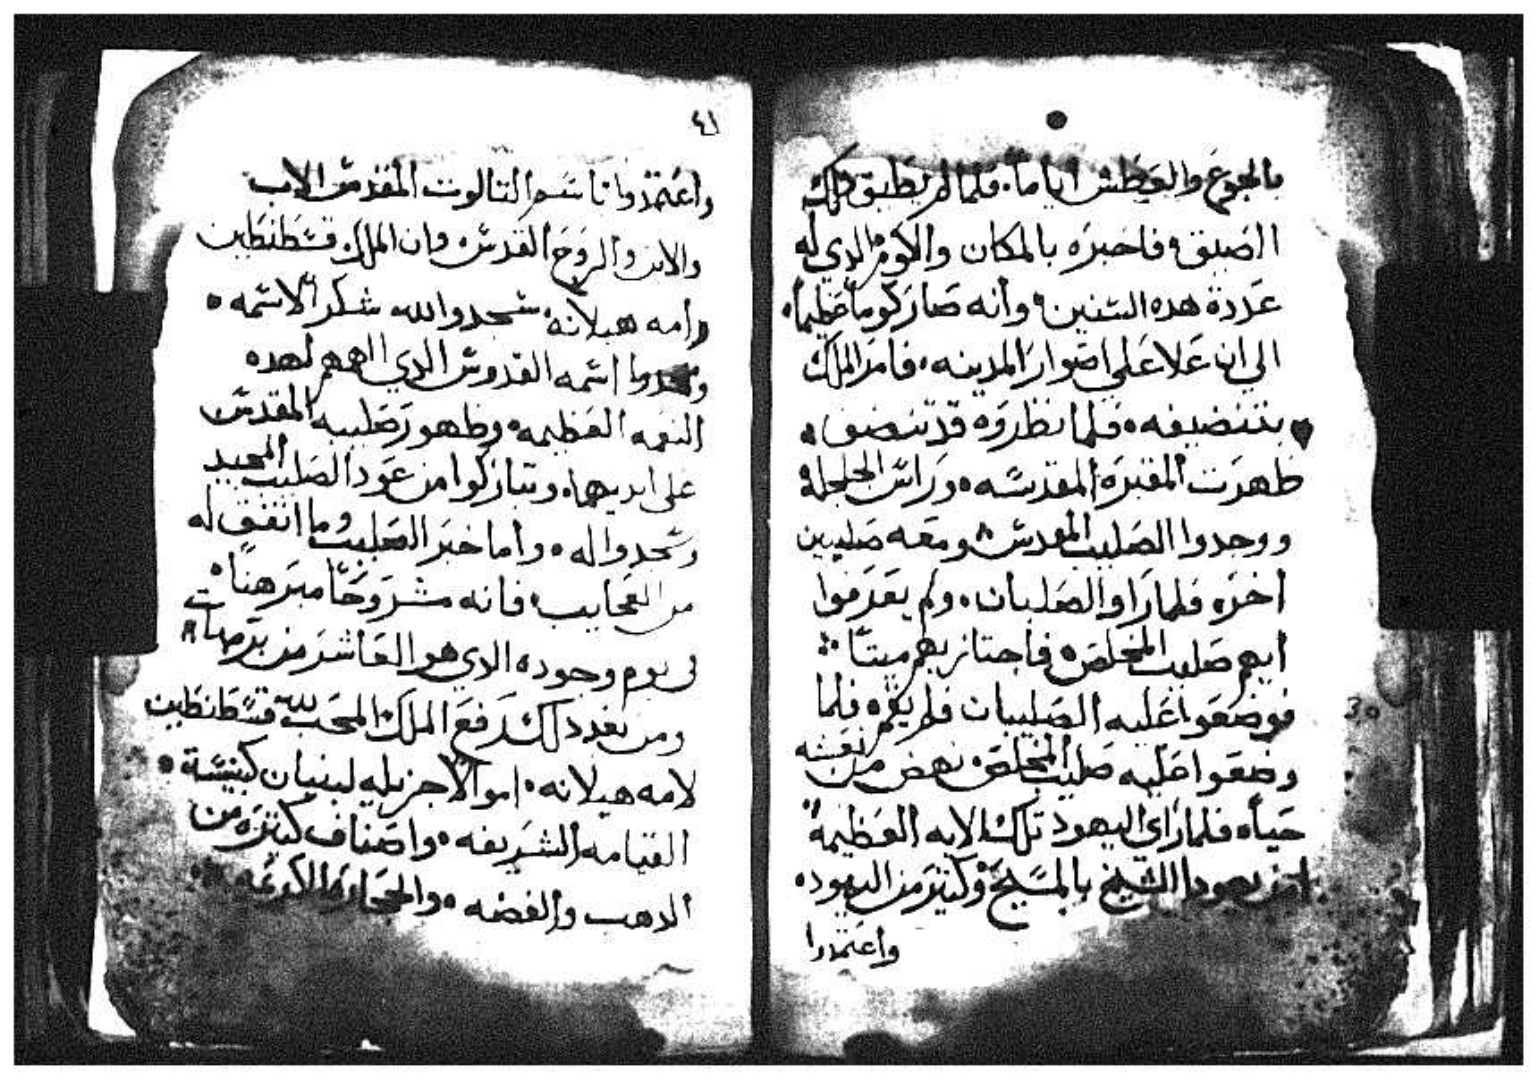 بالجوع والعطش أياماً. فلما لم يطيق ذلك
الضيق. فاخبره بالمكان والكوم الدي له
عددة هده السنين. وأنه صار كوماً عظيماً.
الي ان علا علي اصوار المدينه. فامر الملك
بتنضيفه. فلما نظروه قد تنضف.
ظهرت المقبره المقدسه. وراس الجلجلة
ووجدوا الصليب المقدس ومعه صليبين
أخره فلما راوا الصلبان. ولم يعرفوا
ايهم صليب المخلص. فاجتاز بهم ميتاً
فوضعوا عليه الصليبان فلم يقوم فلما
وضعوا عليه صليب المخلص. نهض من نعشه
حياً. فلما راي اليهود تلك الايه العظيمة
امن يهودا الشيخ بالمسيح وكثير من اليهود.
واعتمدوا
٤١
واعتمدوا باسم التالوت المقدس الاب
والابن والروح القدس. وان الملك قسطنطين
وامه هيلانه. سجدوا لله شكراً لاسمه.
اسمه القدوس الدي الاهم لهده
النعمه العظيمه. وظهور صليبه المقدس
علي ايديهما. وتباركوا من عود الصليب المجيد
وسجدوا له. وأما خبر الصليب وما اتفق له
من العجايب. فانه مشروحاً مبرهناً.
في يوم وجوده. الدي هو العاشر من برمهات
ومن بعد دلك دفع الملك المحب لله قسطنطين
لامه هيلانه. اموالاً جزيله لبنيان كنيسة.
القيامه الشريفه. واصناف كتيره من
الدهب والفضه. والحجارة الكريمه.